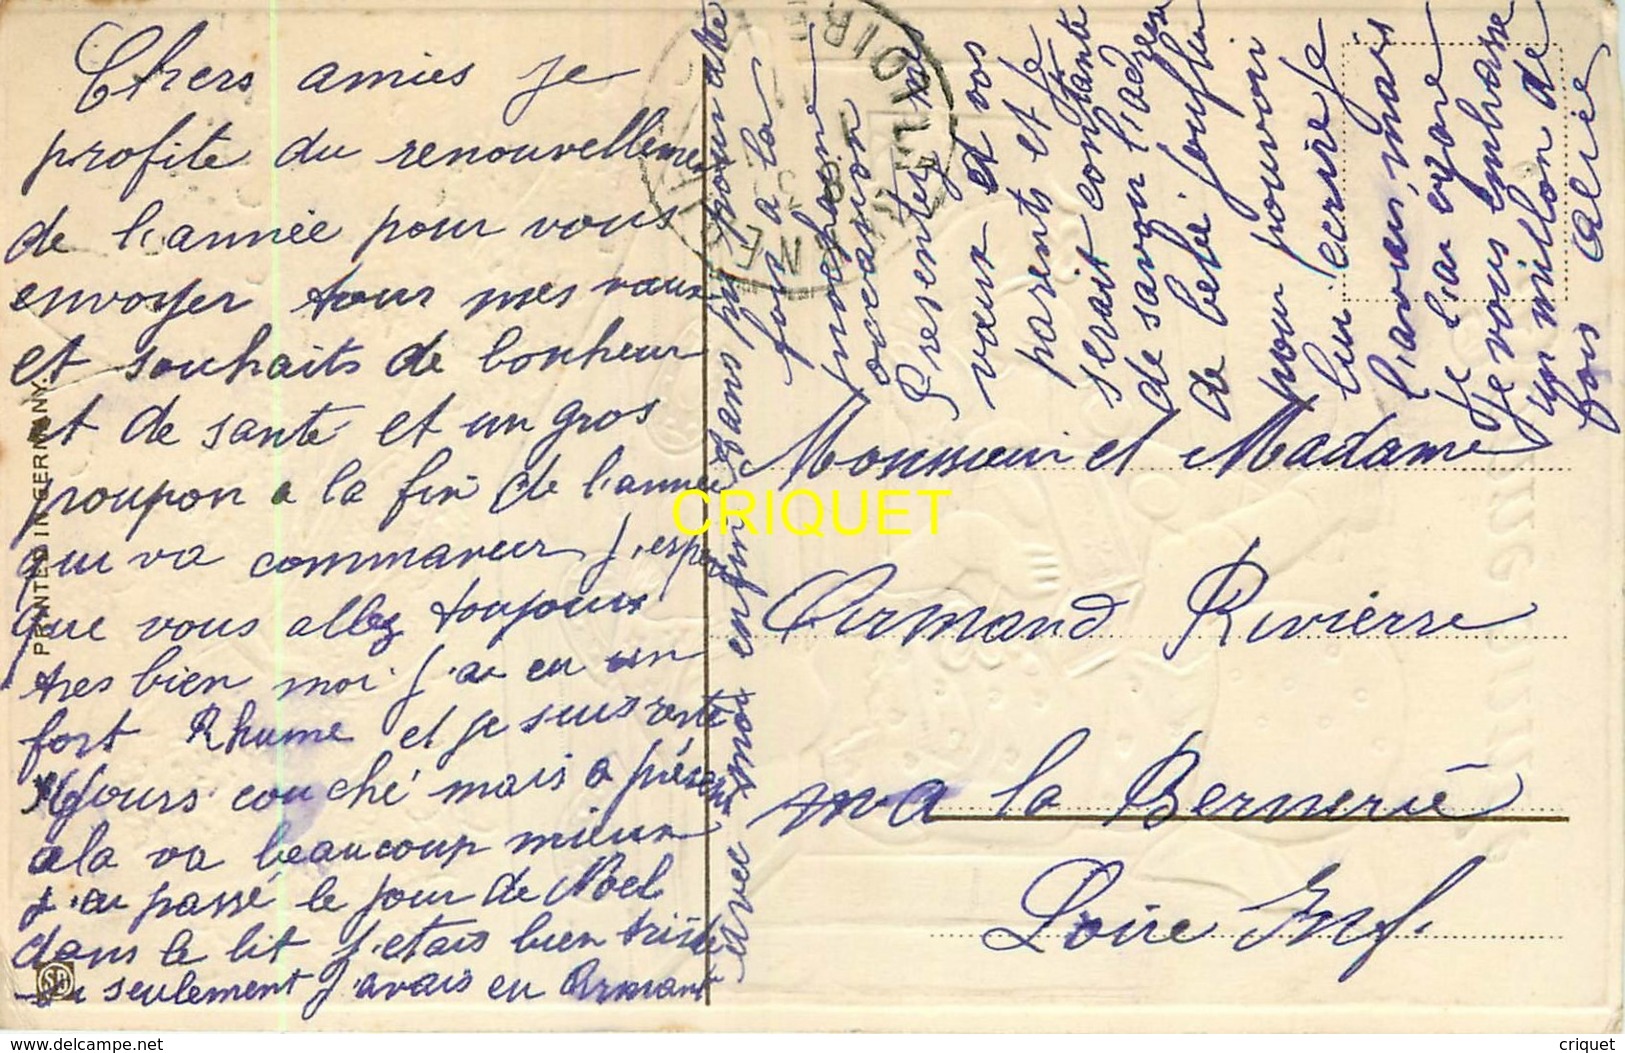 Chers amies je
profite du renouvellemen
de l'année pour vous
envoyer tous mes vœux
et souhaits de bonheur
et de santé et un gros
poupon a la fin de l'année
qui va commancer j'espere
que vous allez toujours
tres bien moi j'ai eu un
fort Rhume et je suis resté
jours couché mais a présent
cela va beaucoup mieux
j'ai passé le jour de Noel
dans le lit j'etais bien triste
si seulement j'avais eu Armant
avec moi enfin sans pour
a la
prochaine
occasion
Presentez mes
vœux a vos
parents et je
serait contante
de savoir l'adresse
de bebé
pour pouvoir
lui ecrire je
l'avais mais
je l'ai
je vous embrasse
un million de
fois Alice
Monsieur et Madame
Armand Rivière
a la Bernerie
Loire Inf.
PRINTED IN GERMANY.
SB
LOIRE
CRIQUET
https://www.delcampe.net
criquet